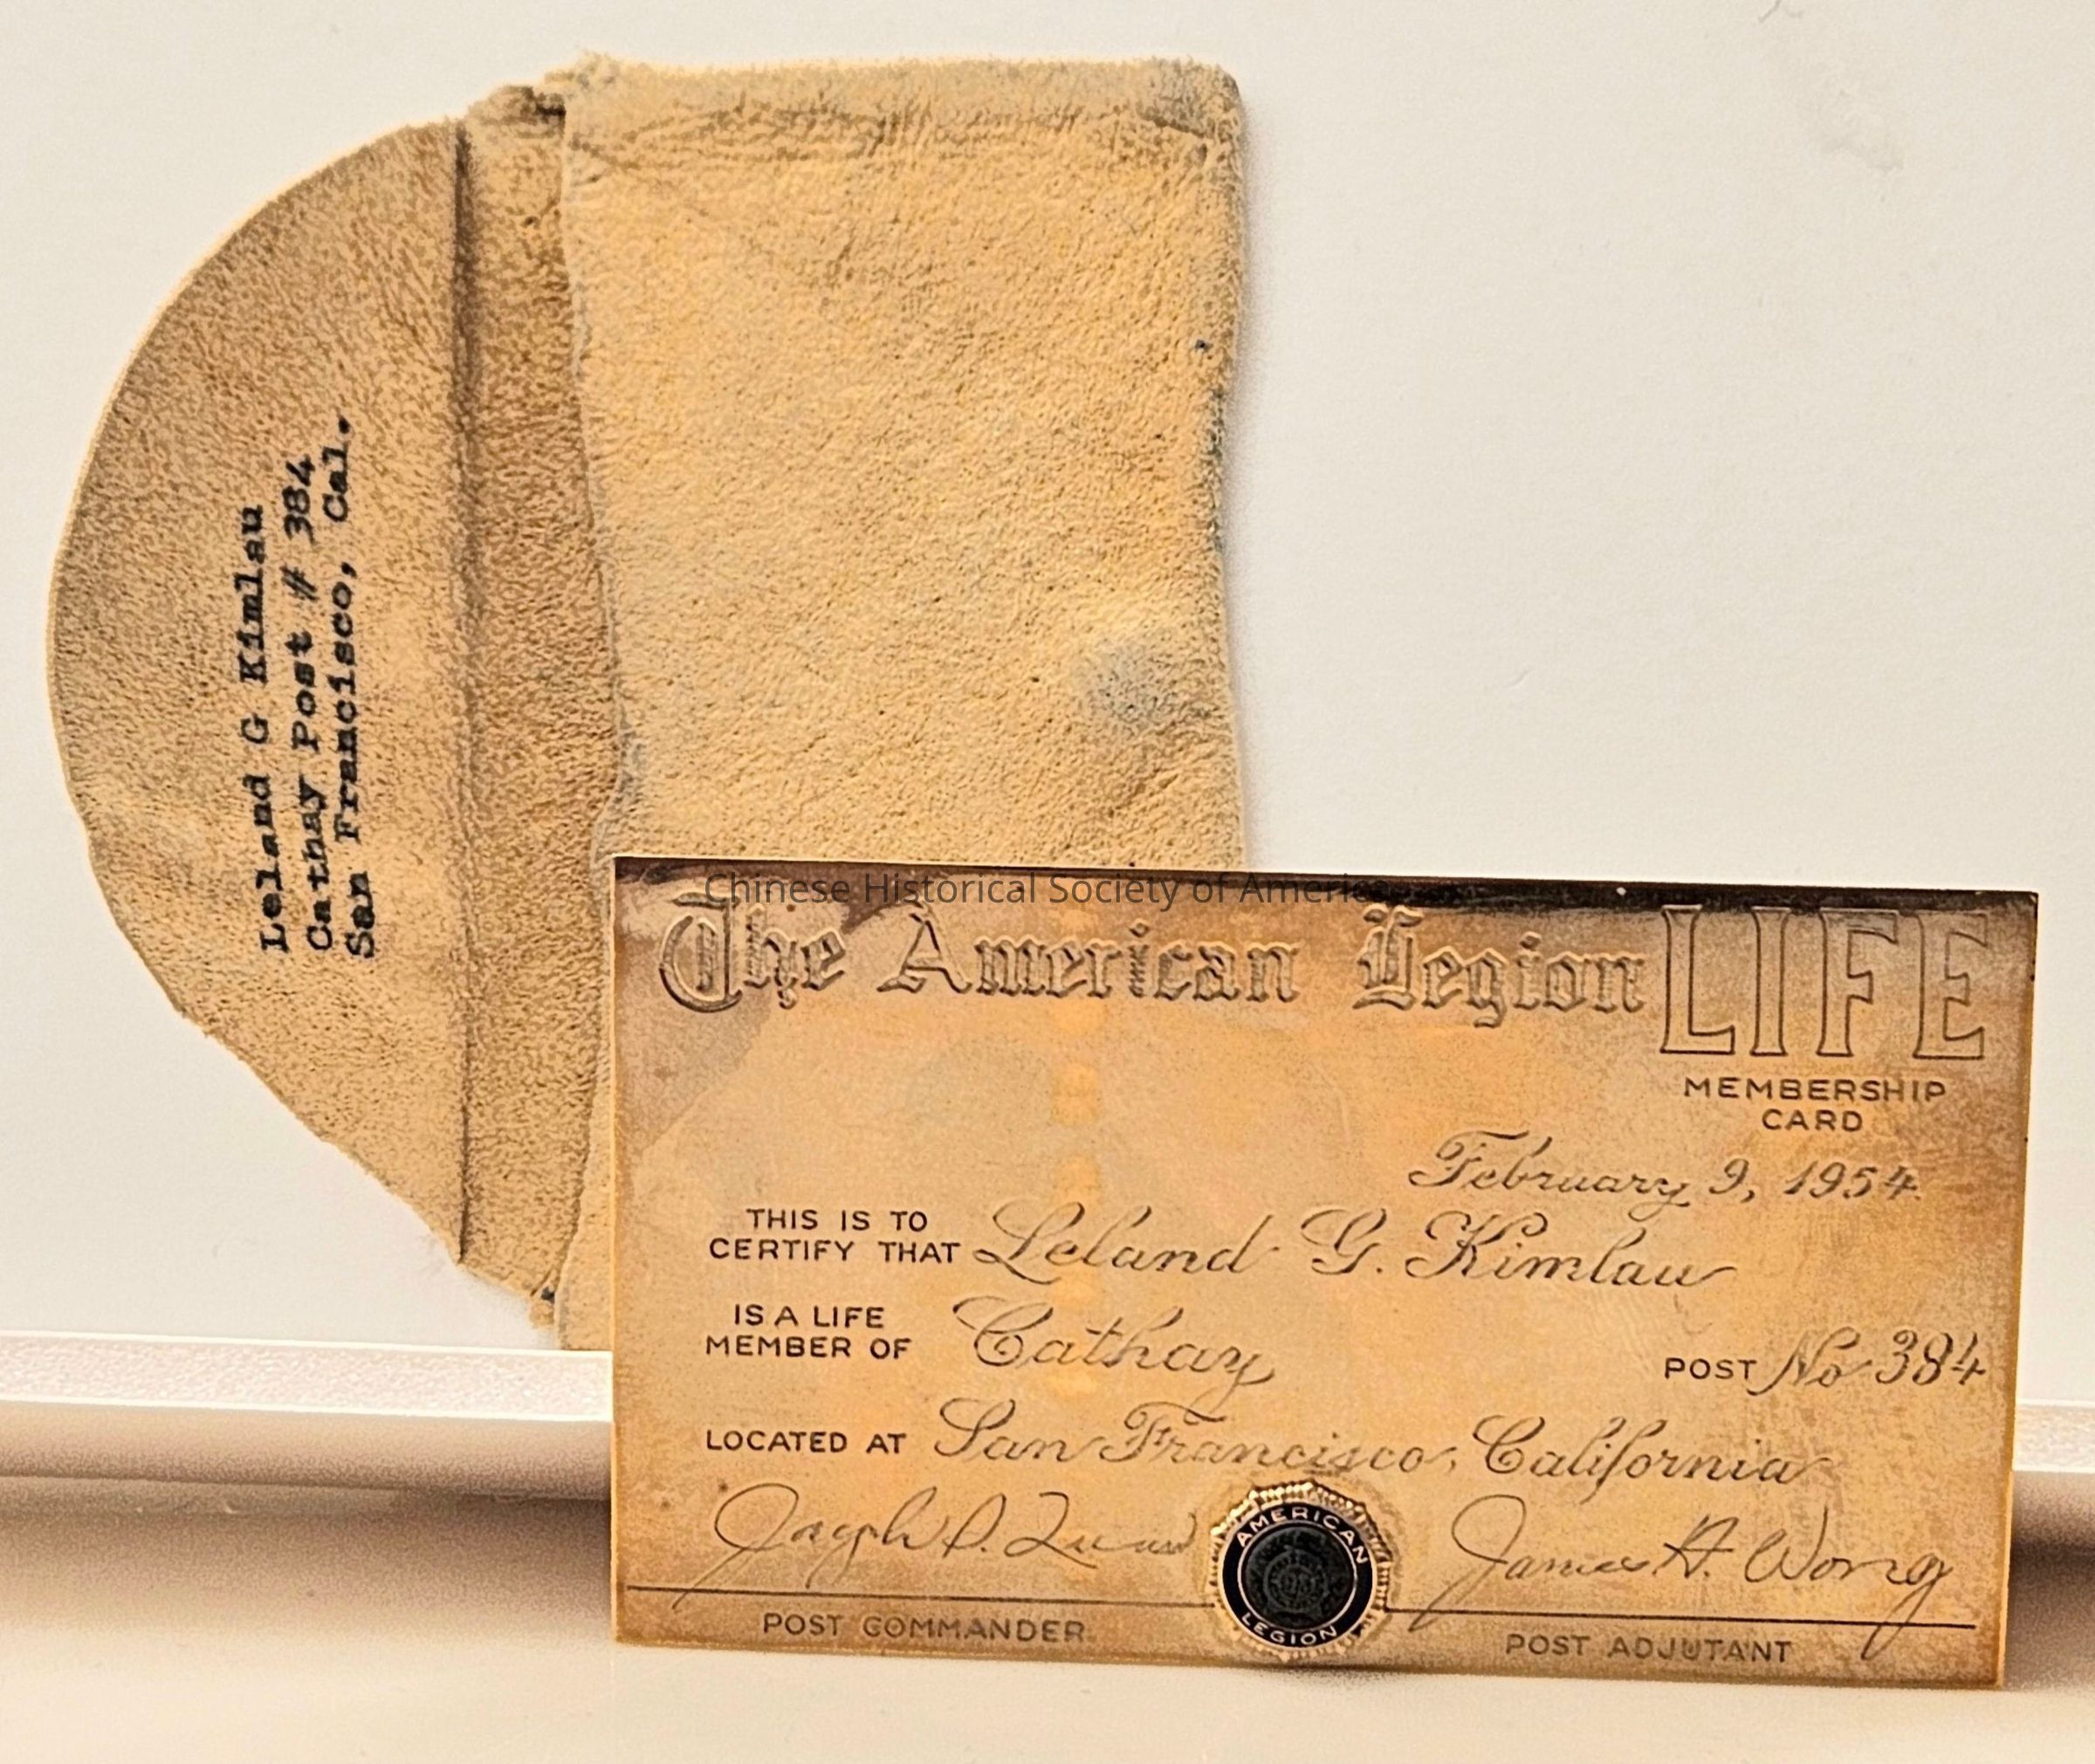 Leland G Kimlau
Cathay Post # 384
San Francisco, Cal.
Chinese Historical Society of America
The American Legion LIFE
MEMBERSHIP
CARD
February 9, 1954
THIS IS TO
CERTIFY THAT Leland G. Kimlau
IS A LIFE
MEMBER OF Cathay POST No 384
LOCATED AT San Francisco, California
Joseph S. James H. Wong
AMERICAN
LEGION
POST COMMANDER
POST ADJUTANT